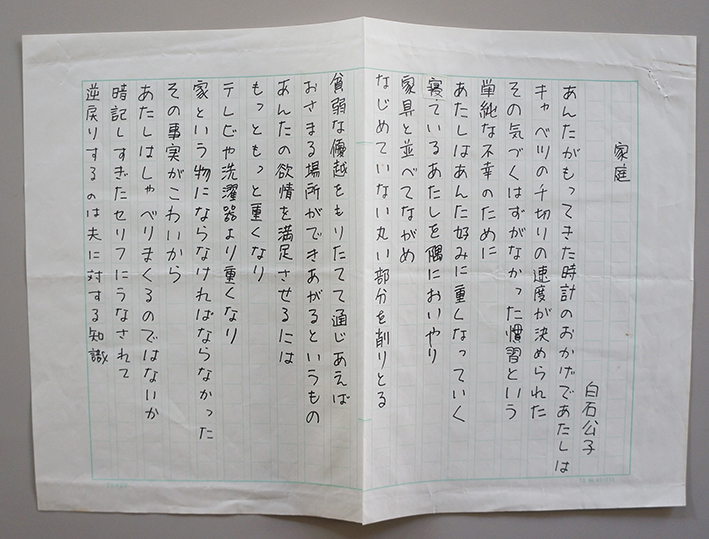 家庭
白石公子
あんたがもってきた時計のおかげであたしは
キャベツの千切りの速度が決められた
その気づくはずがなかった慣習という
単純な不幸のために
あたしはあんた好みに重くなっていく
寝ているあたしを隅においやり
家具と並べてながめ
なじめていない丸い部分を削りとる
貧弱な優越をもりたてて通じあえば
おさまる場所ができあがるというもの
あんたの欲情を満足させるには
もっともっと重くなり
テレビや洗濯器より重くなり
家という物にならなければならなかった
その事実がこわいから
あたしはしゃべりまくるのではないか
暗記しすぎたセリフにうなされて
逆戻りするのは夫に対する知識